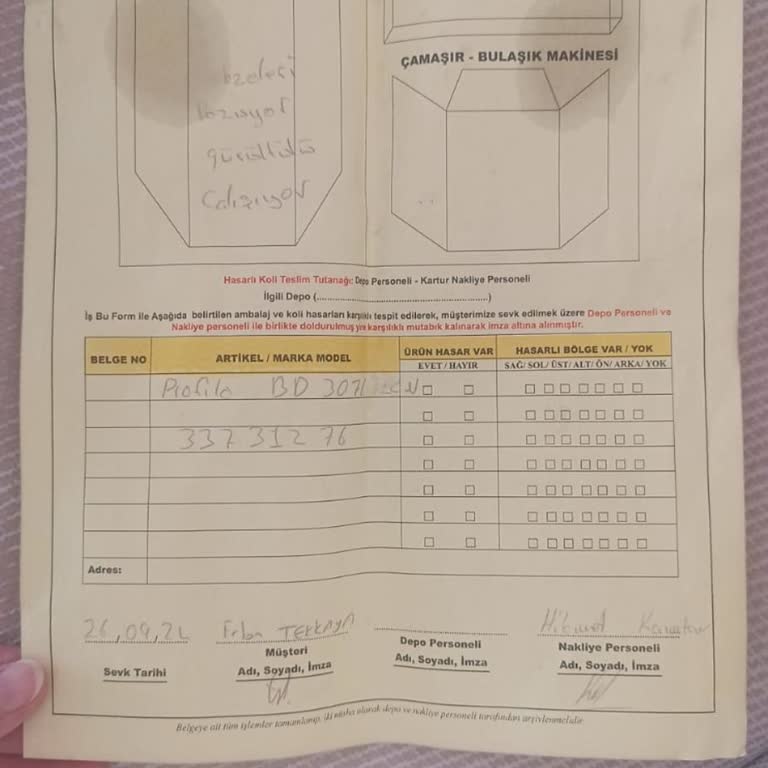 ÇAMAŞIR - BULAŞIK MAKİNESİ
bozuyor
gürültülü
Çalışıyor
Hasarlı Koli Teslim Tutanağı: Depo Personeli - Kartur Nakliye Personeli
İlgili Depo (....................................................)
İş Bu Form ile Aşağıda belirtilen ambalaj ve koli hasarları karşılıklı tespit edilerek, müşterimize sevk edilmek üzere Depo Personeli ve
Nakliye personeli ile birlikte doldurulmuş ve karşılıklı mutabık kalınarak imza altına alınmıştır.
BELGE NO ARTİKEL / MARKA MODEL ÜRÜN HASAR VAR HASARLI BÖLGE VAR / YOK
EVET / HAYIR SAĞ/ SOL/ ÜST/ ALT/ ÖN/ ARKA/ YOK
Profilo BD 3071
337 312 76
Adres:
26,09,24 TEKKAYA Hikmet
Sevk Tarihi
Müşteri
Adı, Soyadı, İmza
Depo Personeli
Adı, Soyadı, İmza
Nakliye Personeli
Adı, Soyadı, İmza
Belgeye ait tüm işlemler tamamlanıp, iki nüsha olarak depo ve nakliye personeli tarafından arşivlenmelidir